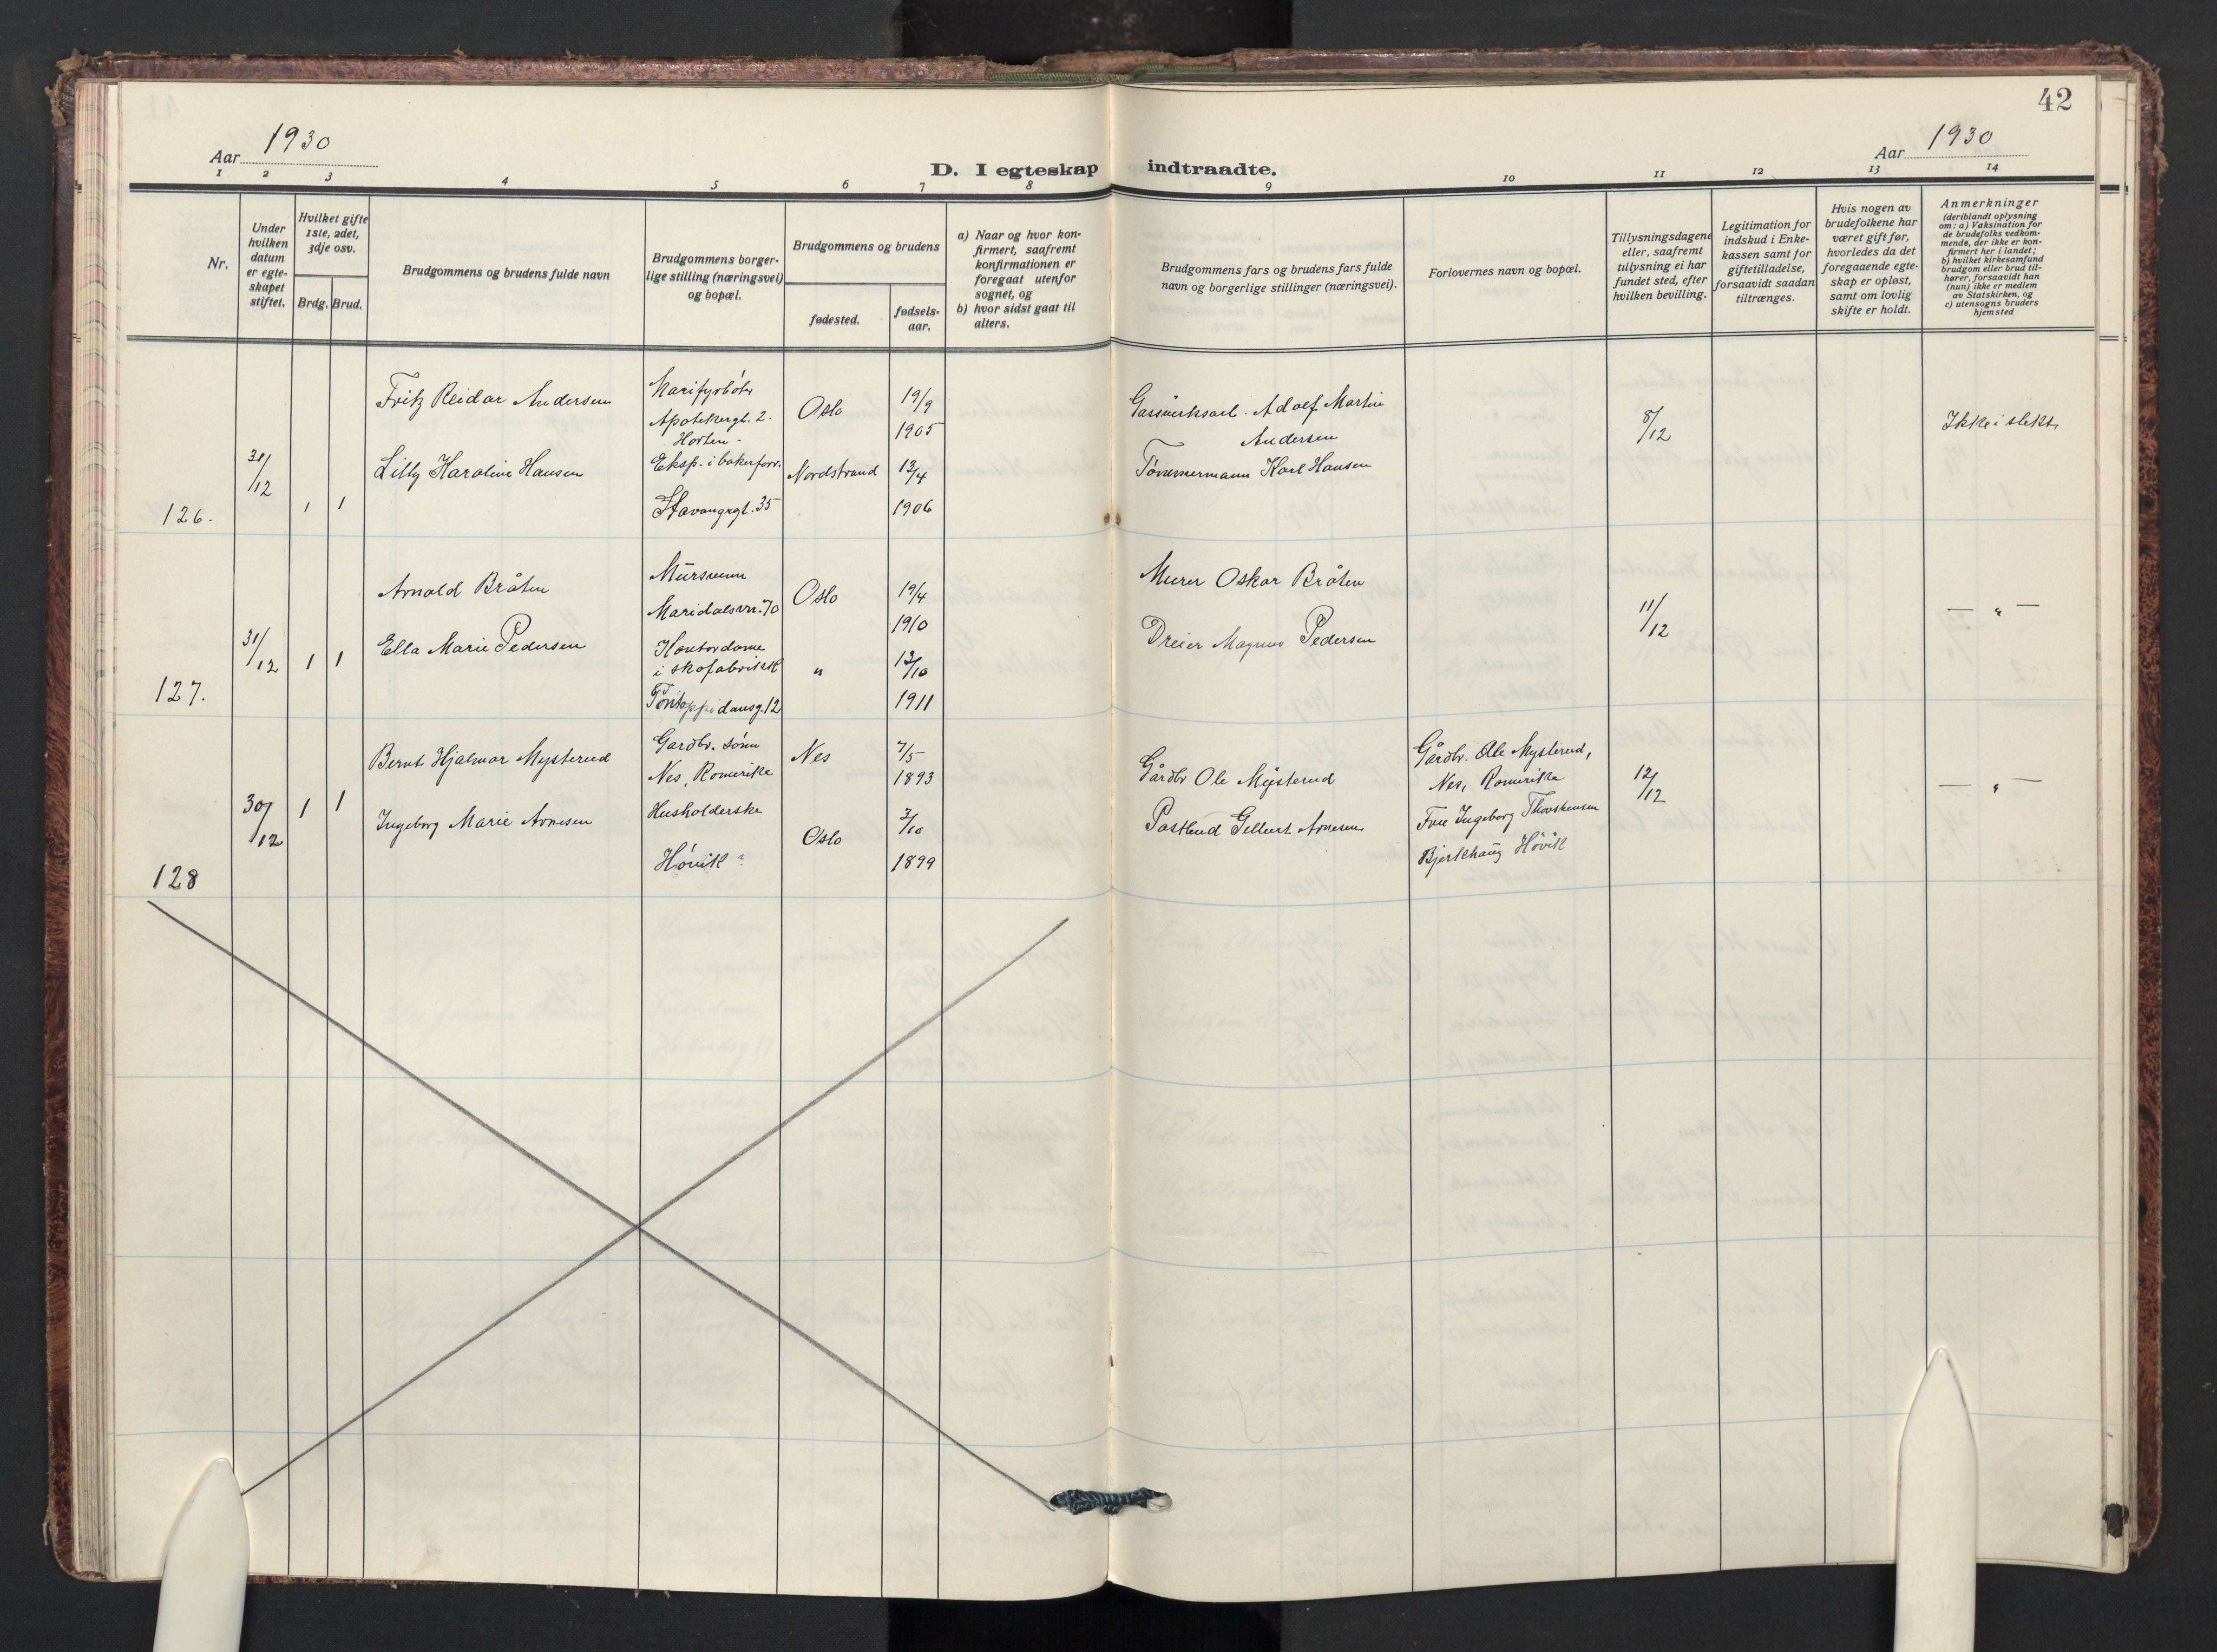 42
Aar 1930
Aar 1930
D. I egteskap indtraadte.
1 2 3 4 5 6 7 8 9 10 11 12 13 14
Nr.
Under hvilken datum er egte-skapet stiftet.
Hvilket gifte 1ste, 2det, 3dje osv.
Brdg. Brud.
Brudgommens og brudens fulde navn
Brudgommens borger-lige stilling (næringsvei) og bopæl.
Brudgommens og brudens
fødested.
fødsels-aar.
a) Naar og hvor kon-firmert, saafremt konfirmationen er foregaat utenfor sognet, og
b) hvor sidst gaat til alters.
Brudgommens fars og brudens fars fulde navn og borgerlige stillinger (næringsvei).
Forlovernes navn og bopæl.
Tillysningsdagene eller, saafremt tillysning ei har fundet sted, efter hvilken bevilling.
Legitimation for indskud i Enke-kassen samt for giftetilladelse, forsaavidt saadan tiltrænges.
Hvis nogen av brudefolkene har været gift før, hvorledes da det foregaaende egte-skap er opløst, samt om lovlig skifte er holdt.
Anmerkninger
(deriblandt oplysning om: a) Vaksination for de brudefolks vedkom-mende, der ikke er kon-firmert her i landet; b) hvilket kirkesamfund brudgom eller brud til-hører, forsaavidt han (hun) ikke er medlem av Statskirken, og c) utensogns bruders hjemsted
126.
31/12
1 1
Fritz Reidar Andersen
Marifyrbøter
Apotekergt. 2.
Horten -
Oslo
19/9
1905
Gassverksarb. Adolf Martin
Andersen
8/12
Ikke i slekt
Lilly Karoline Hansen
Eksp. i bakerforr.
Stavangrgt. 35
Nordstrand
13/4
1906
Tømmermann Karl Hansen
127.
31/12
1 1
Arnold Bråten
Mursvenn
Maridalsvn. 70
Oslo
19/4
1910
Murer Oskar Bråten
11/12
— " —
Ella Marie Pedersen
Kontordame
i skofabrikk
Pontoppidansg. 12
"
13/10
1911
Dreier Magnus Pedersen
128
30/12
1 1
Bernt Hjalmar Mysterud
Gardbr. sønn
Nes, Romerike
Nes
7/5
1893
Gårdbr Ole Mysterud
Gårdbr. Ole Mysterud,
Nes, Romerike
12/12
— " —
Ingeborg Marie Arnesen
Husholderske
Høvik
Oslo
3/10
1899
Postbud Gilbert Arnesen
Frue Ingeborg
Bjerkhaug Høvik